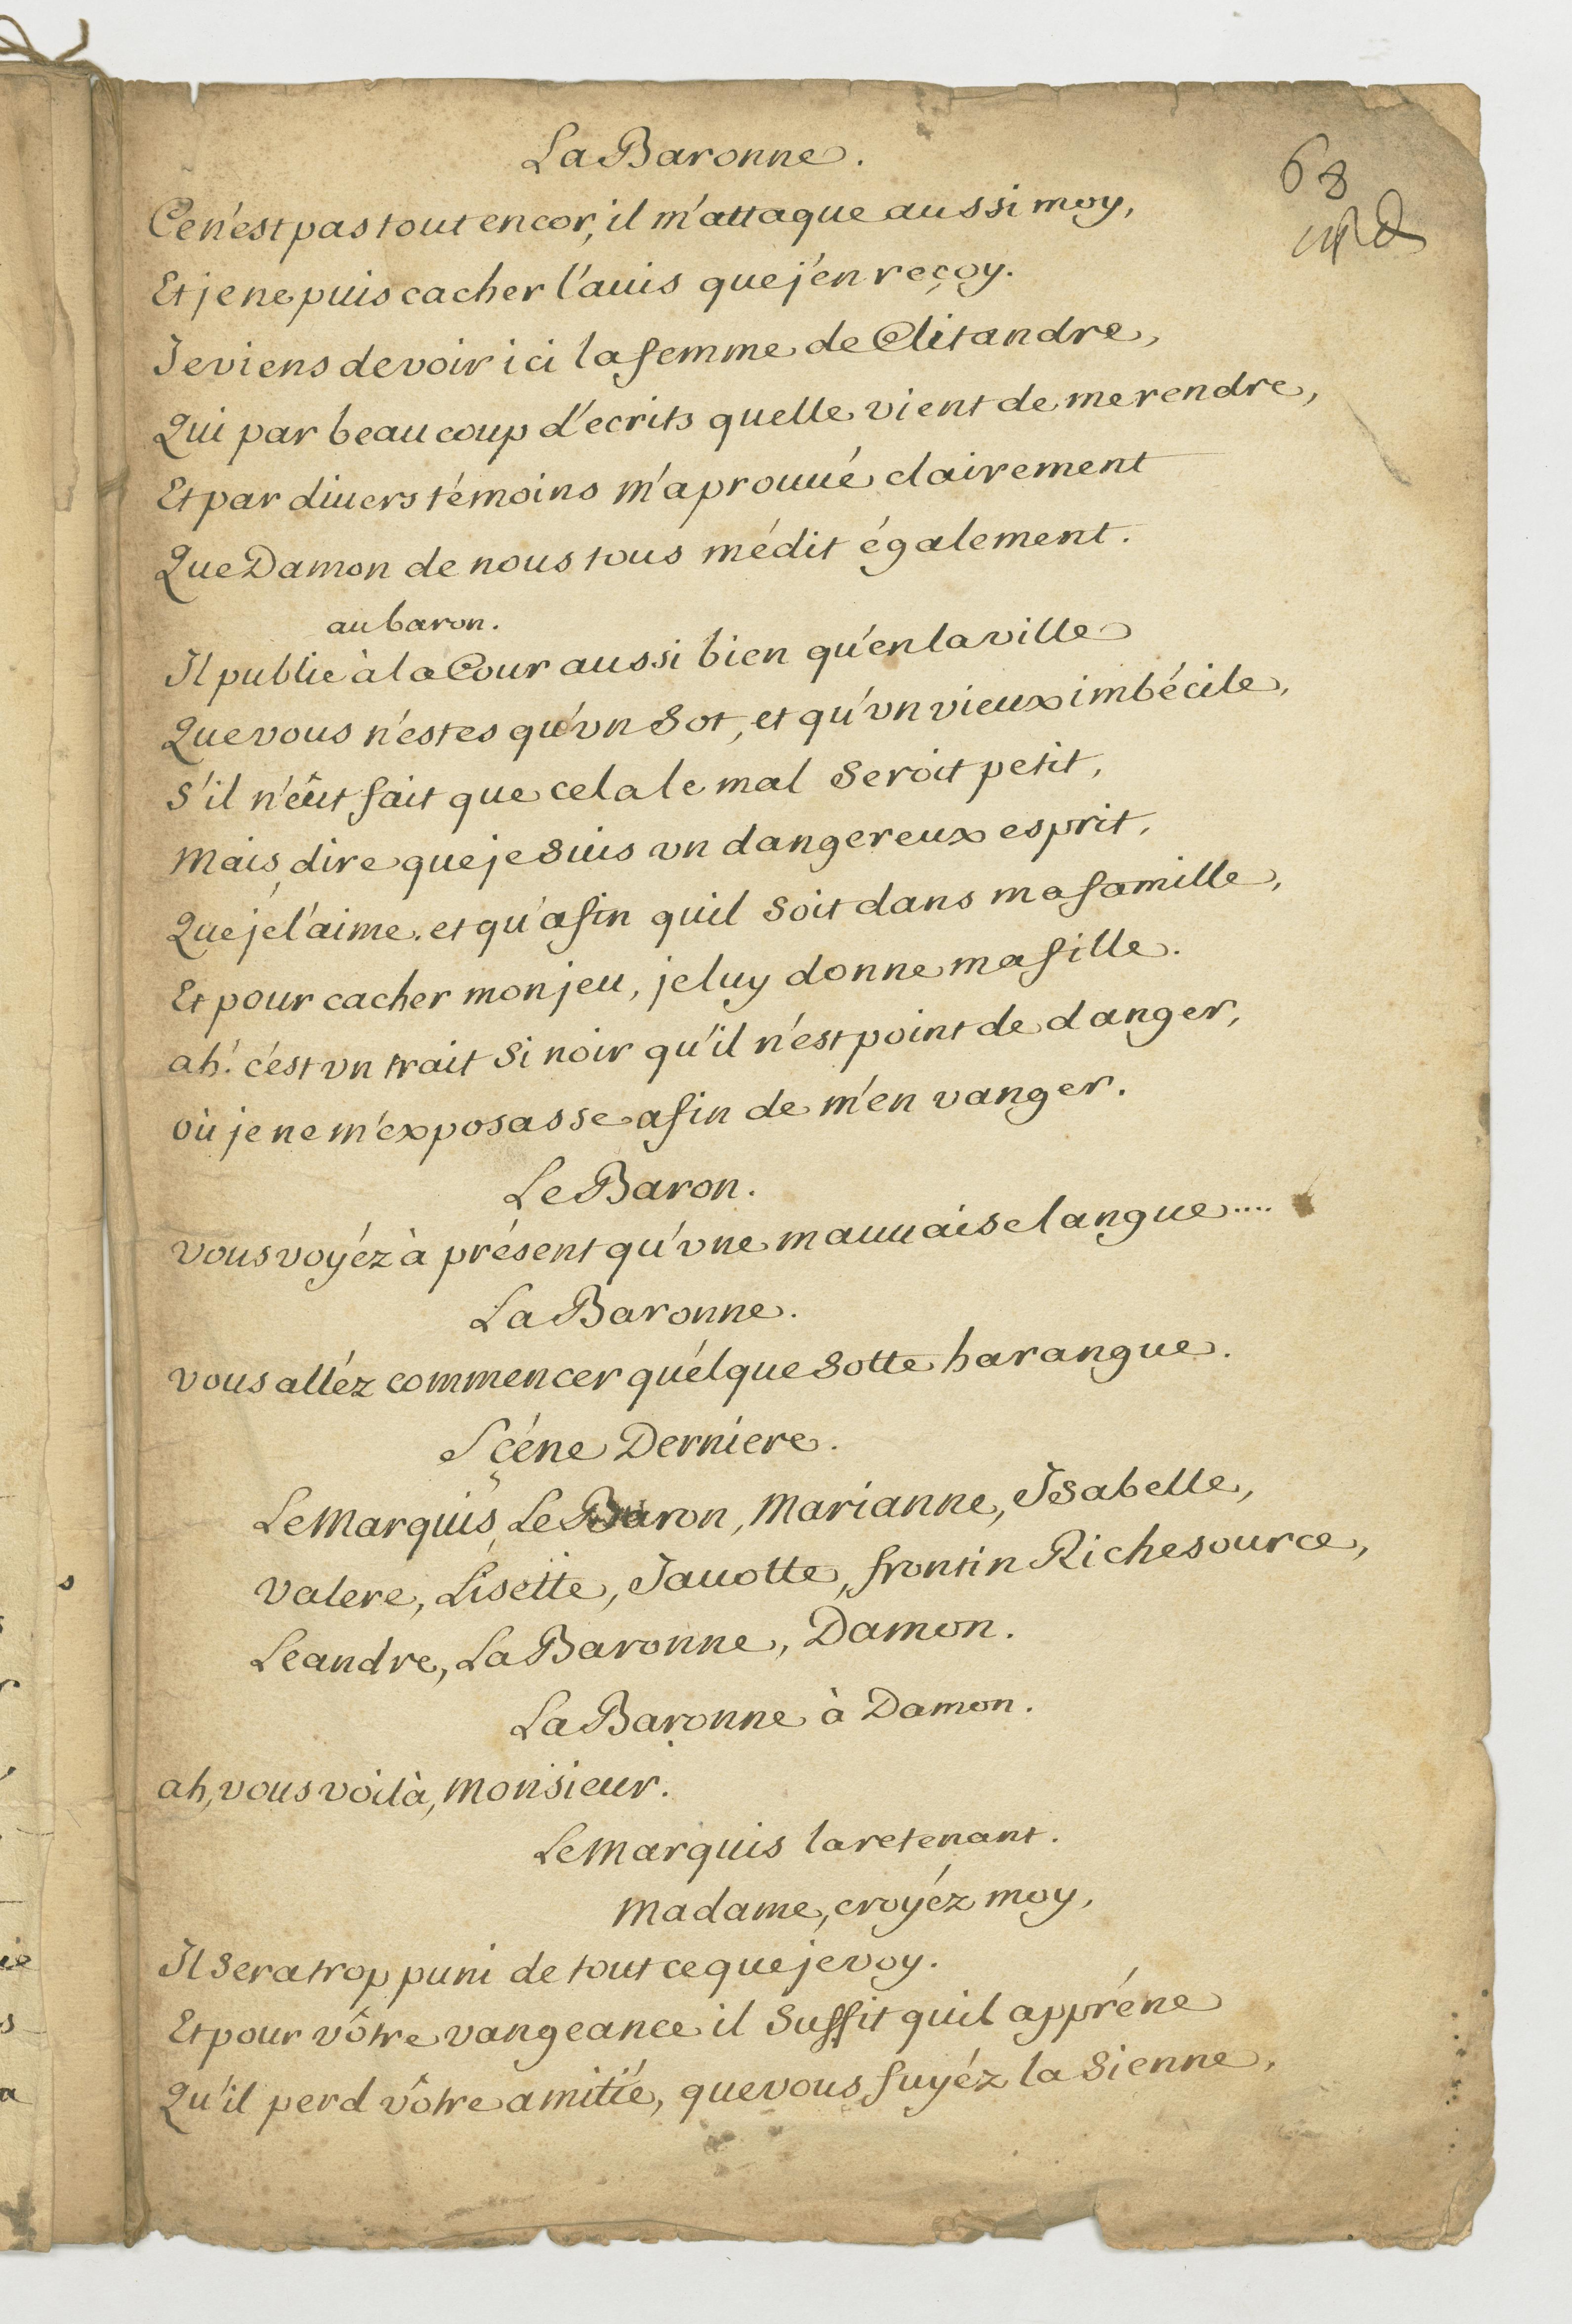 La Baronne.
68
Ce n'est pas tout encor, il m'attaque aussi moy,
Et je ne puis cacher l'auis que j'en reçoy.
Je viens de voir ici la femme de Clitandre,
Qui par beaucoup d'ecrits quelle vient de me rendre,
Et par diuers témoins m'a prouué clairement
Que Damon de nous tous médit également.
au baron.
Il publie à la Cour aussi bien qu'en la ville
Que vous n'estes qu'vn Sot, et qu'vn vieux imbécile,
S'il n'eût fait que cela le mal Seroit petit,
Mais, dire que je Suis vn dangereux esprit,
Que je l'aime, et qu'afin quil Soit dans ma famille,
Et pour cacher mon jeu, je luy donne ma fille.
ah! c'est vn trait Si noir qu'il n'est point de danger,
où je ne m'exposasse afin de m'en vanger.
Le Baron.
vous voyéz à présent qu'vne mauuaise langue....
La Baronne.
vous alléz commencer quélque Sotte harangue.
Sçéne Derniere.
Le Marquis, Le Baron, Marianne, Isabelle,
Valere, Lisette, Jauotte, frontin Richesource,
Leandre, La Baronne, Damon.
La Baronne à Damon.
ah, vous voilà, Monsieur.
Le Marquis la retenant.
Madame, croyéz moy,
Il Sera trop puni de tout ce que je voy.
Et pour vôtre vangeance il Suffit quil appréne
Qu'il perd vôtre amitié, que vous fuyéz la Sienne,